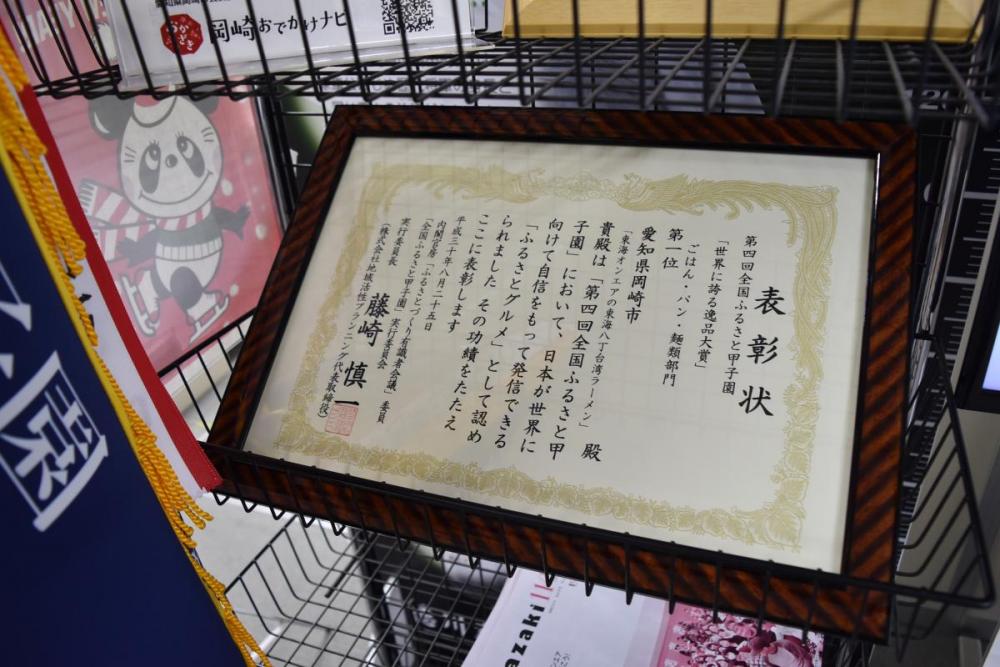 岡崎おでかけナビ
表彰状
第四回全国ふるさと甲子園
「世界に誇る逸品大賞」
ごはん・パン・麺類部門
第一位
愛知県岡崎市
「東海オンエアの東海八丁台湾ラーメン」 殿
貴殿は「第四回全国ふるさと甲
子園」において、日本が世界に
向けて自信をもって発信できる
「ふるさとグルメ」として認め
られました その功績をたたえ
ここに表彰します
平成三十年八月二十五日
内閣官房「ふるさとづくり有識者会議」委員
「全国ふるさと甲子園」実行委員会
実行委員長 藤崎 慎一
(株式会社地域活性プランニング代表取締役)
園
azaki